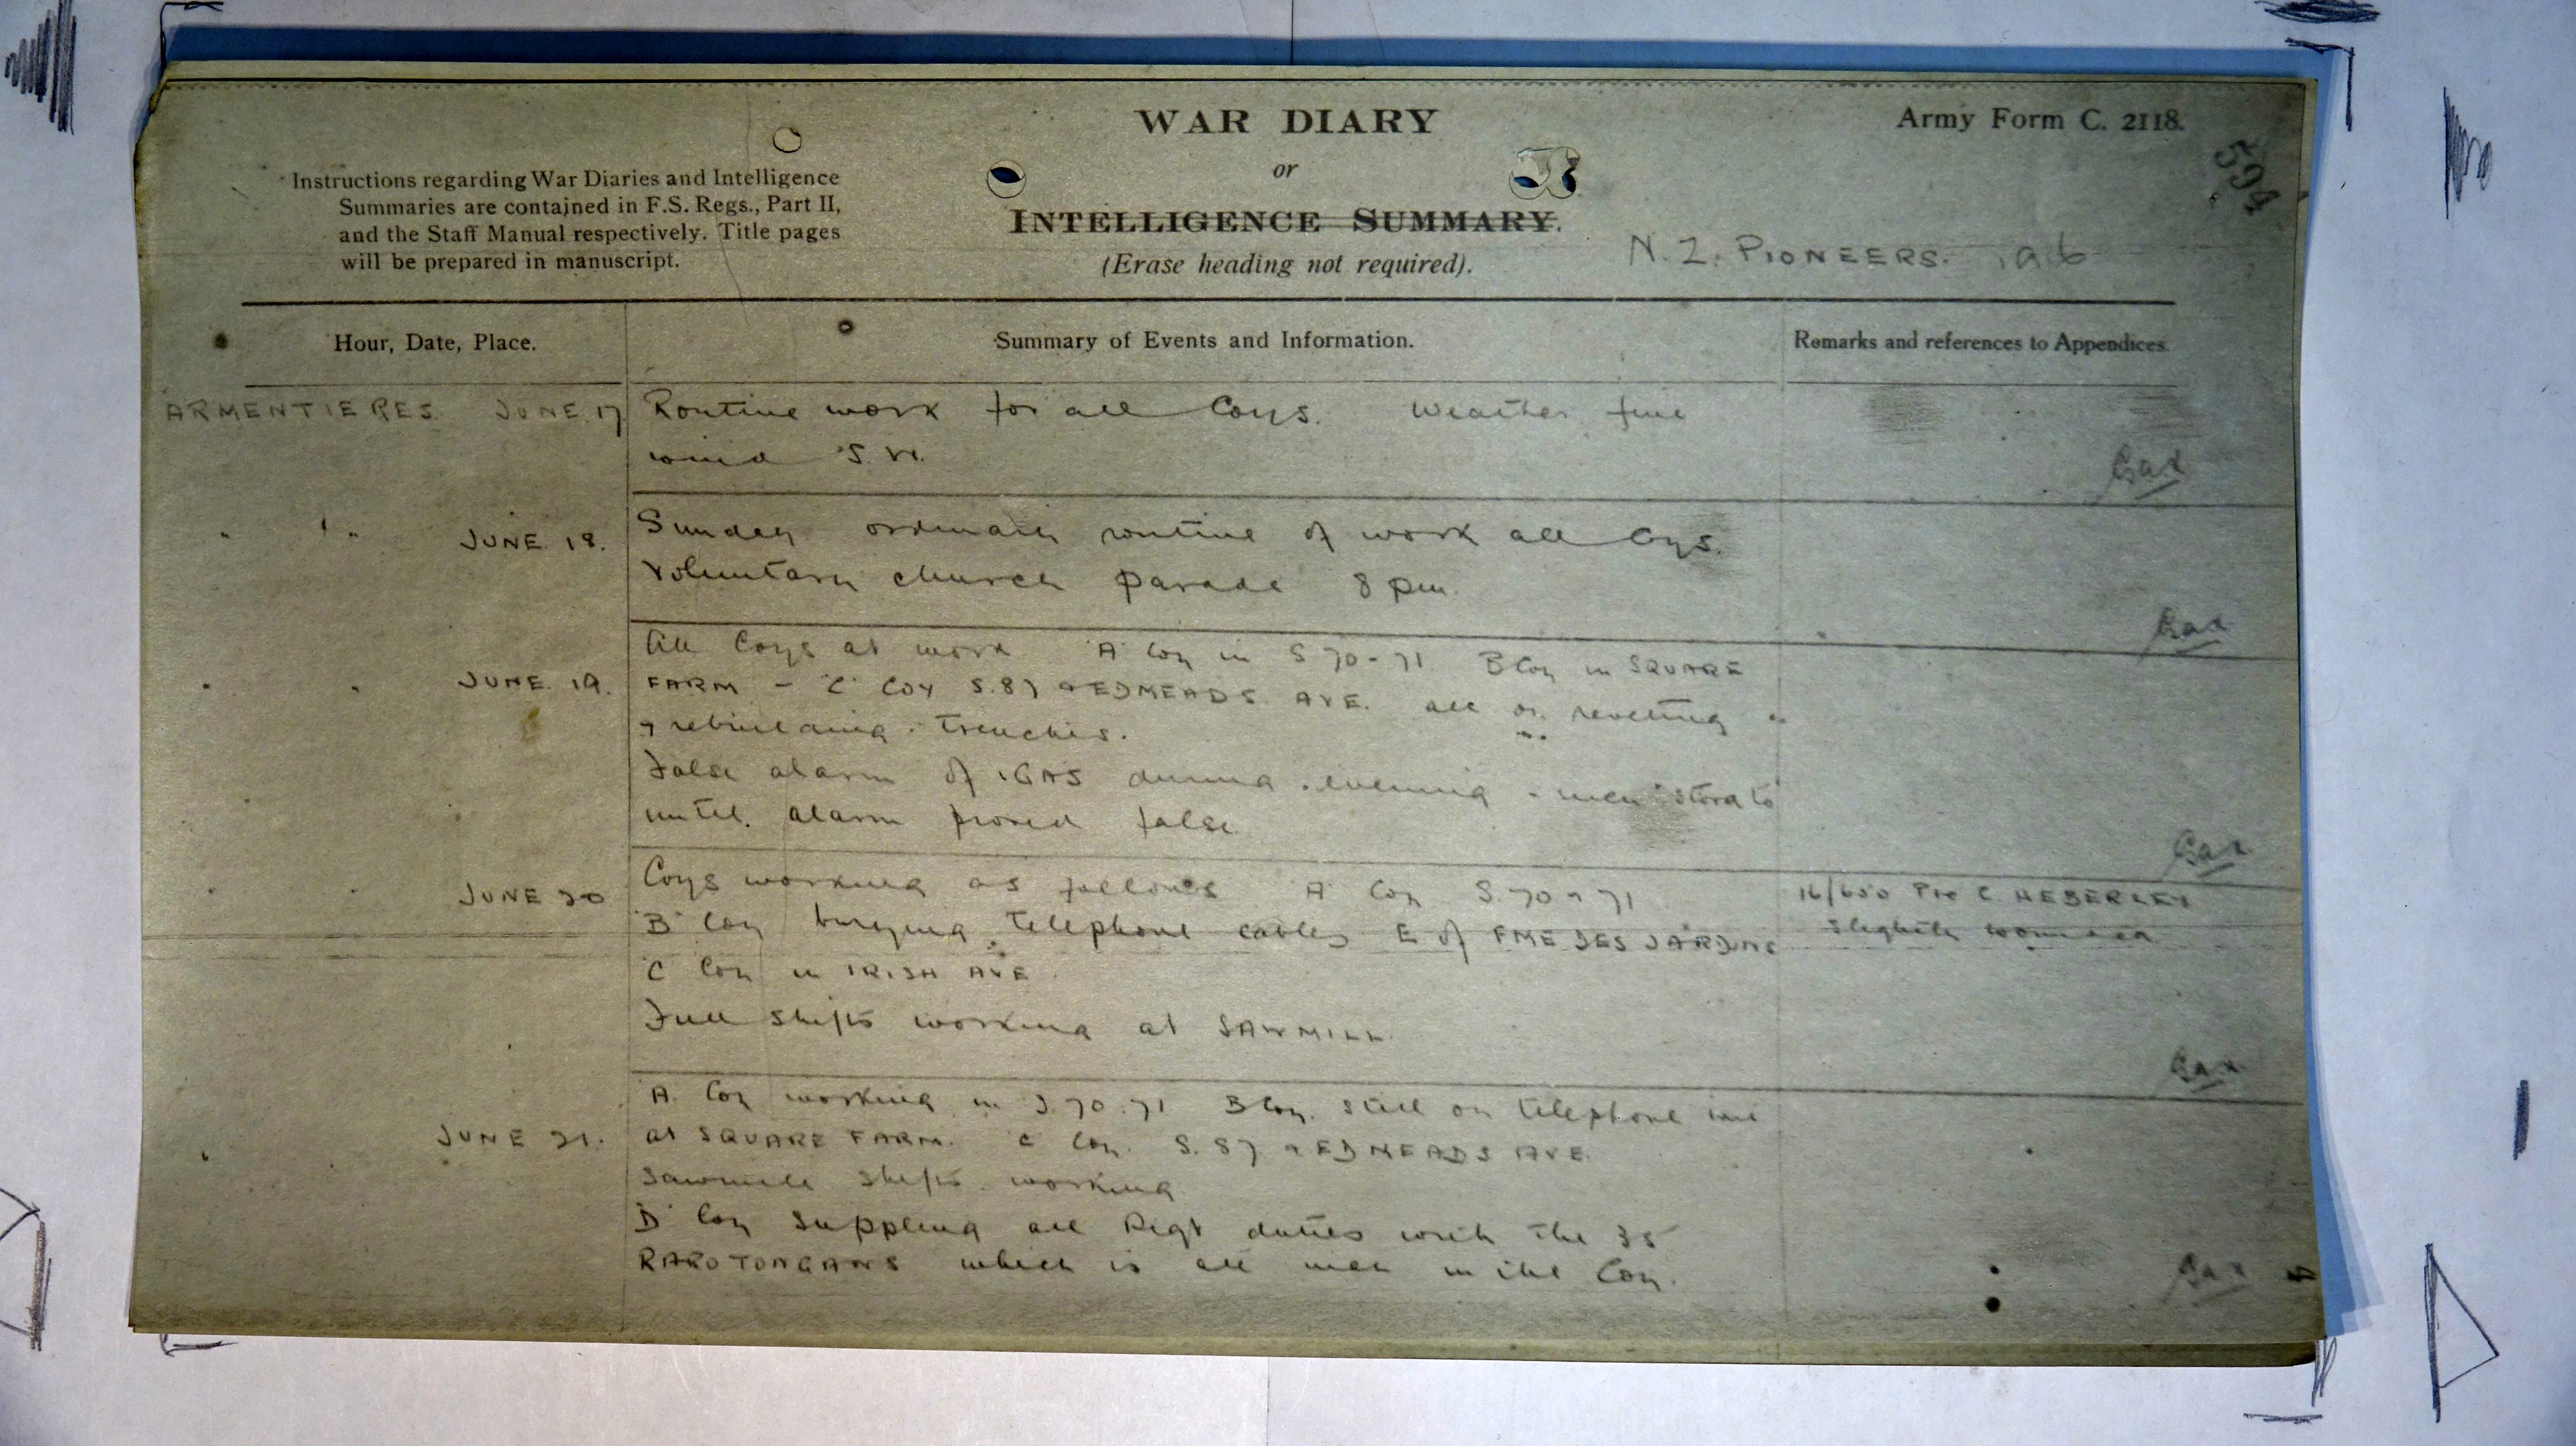 WAR DIARY
or
INTELLIGENCE SUMMARY.
(Erase heading not required).
Army Form C. 2118.
594
Instructions regarding War Diaries and Intelligence
Summaries are contained in F.S. Regs., Part II,
and the Staff Manual respectively. Title pages
will be prepared in manuscript.
N. Z. PIONEERS.
Hour, Date, Place.
Summary of Events and Information.
Remarks and references to Appendices.
ARMENTIERES. JUNE. 17
Routine work for all Coys. Weather fine
wind S.W.
" " JUNE 18.
Sunday ordinary routine of work all Coys.
Voluntary church parade 8 pm.
" " JUNE. 19.
All Coys at work A Coy in S 70-71 B Coy in SQUARE
FARM - 'C' COY S.87 & EDMEADS AVE. all on revetting
& rebuilding trenches.
False alarm of GAS during evening - men stood to
until alarm proved false
" " JUNE 20
Coys working as follows A Coy S. 70 & 71
'B' Coy burying telephone cables E of FME DES JARDINS
'C' Coy in IRISH AVE
Full shifts working at SAWMILL.
16/650 Pte C. HEBERLEY
slightly wounded
" JUNE 21.
A. Coy working in S.70.71 B Coy. still on telephone line
at SQUARE FARM. C Coy. S. 87 & EDMEADS AVE.
Sawmill shifts working
D Coy suppling all Regt duties with the 35
RAROTONGANS which is all men in the Coy.